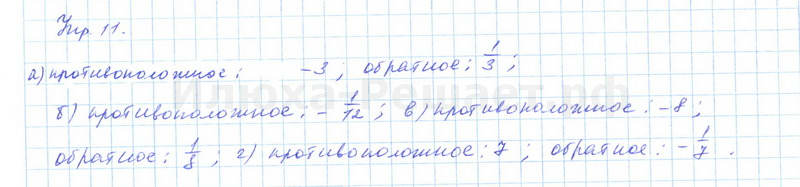 Упр. 11.
а) противоположное: -3; обратное: 1/3;
б) противоположное: -1/12; в) противоположное: -8;
обратное: 1/8; г) противоположное: 7; обратное: -1/7.
Илюха-Решает.рф